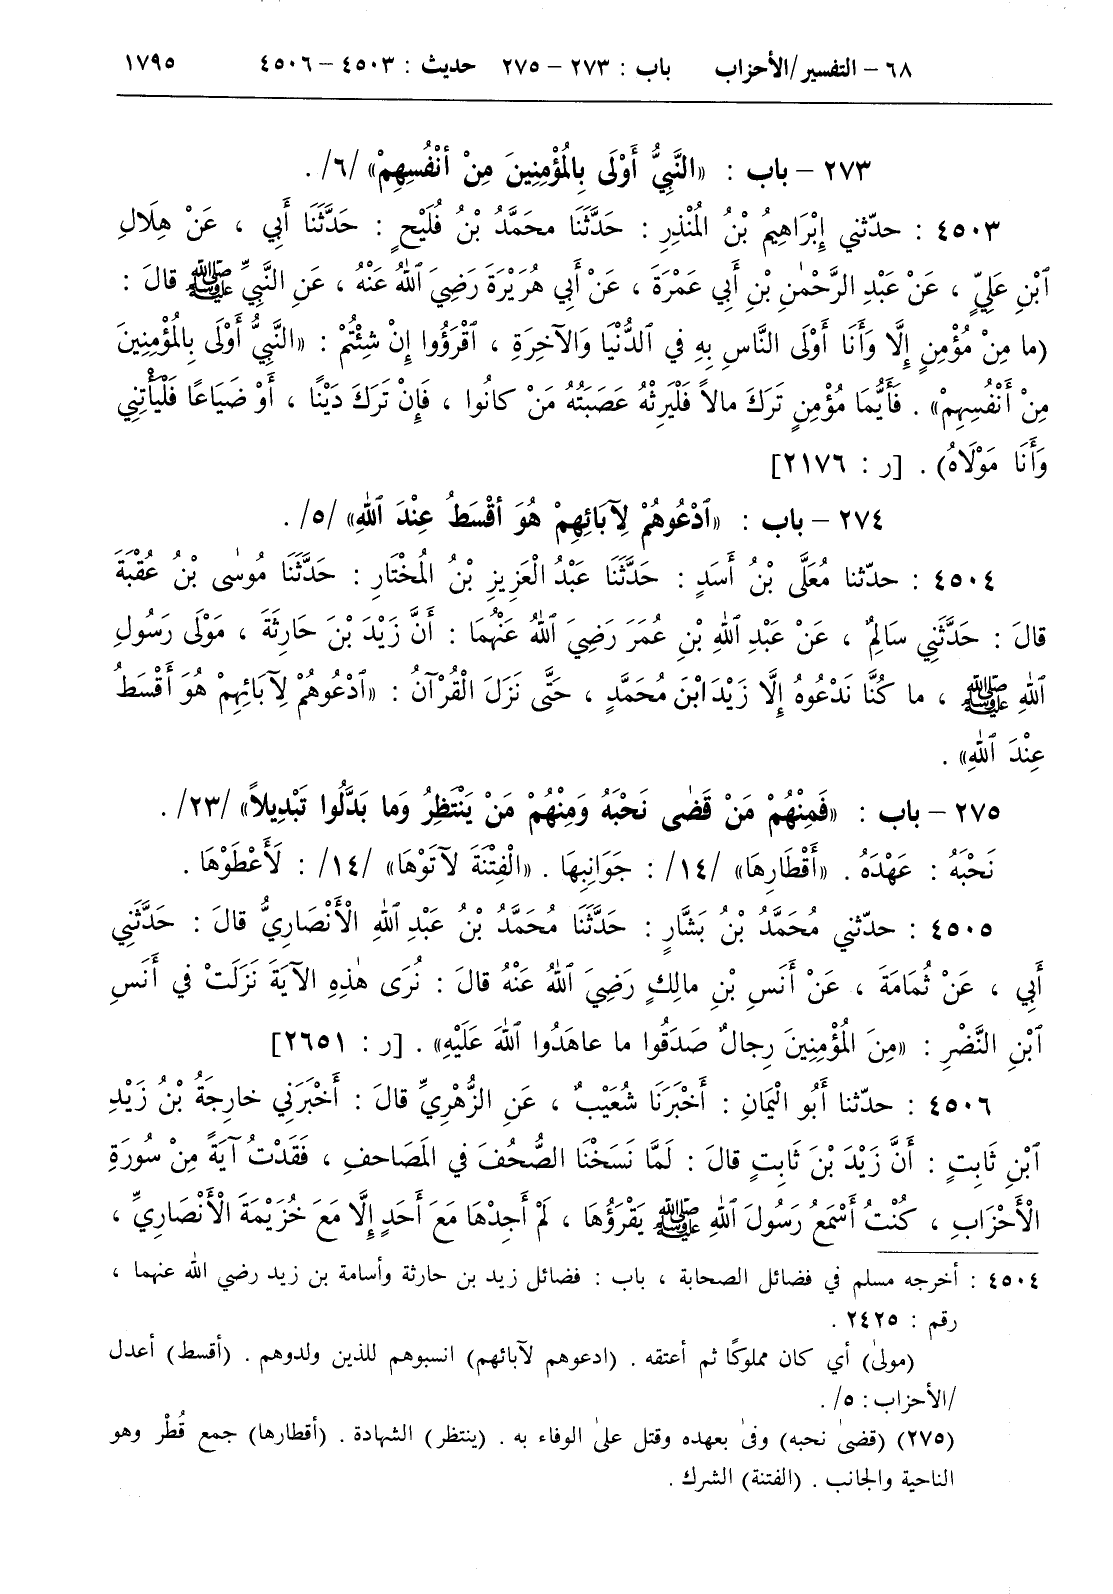 ٦٨ – التفسير/الأحزاب باب : ٢٧٣ – ٢٧٥ حديث : ٤٥٠٣ – ٤٥٠٦ ١٧٩٥
٢٧٣ – باب : «النَّبِيُّ أَوْلَى بِالْمُؤْمِنِينَ مِنْ أَنْفُسِهِمْ» /٦/ .
٤٥٠٣ : حدّثني إِبْرَاهِيمُ بْنُ الْمُنْذِرِ : حَدَّثَنَا محَمَّدُ بْنُ فُلَيْحٍ : حَدَّثَنَا أَبِي ، عَنْ هِلَالِ
ٱبْنِ عَلِيٍّ ، عَنْ عَبْدِ الرَّحْمٰنِ بْنِ أَبِي عَمْرَةَ ، عَنْ أَبِي هُرَيْرَةَ رَضِيَ ٱللهُ عَنْهُ ، عَنِ النَّبِيِّ ﷺ قالَ :
(ما مِنْ مُؤْمِنٍ إِلَّا وَأَنَا أَوْلَى النَّاسِ بِهِ في ٱلدُّنْيَا وَالآخِرَةِ ، ٱقْرَؤُوا إِنْ شِئْتُمْ : «النَّبِيُّ أَوْلَى بِالْمُؤْمِنِينَ
مِنْ أَنْفُسِهِمْ» . فَأَيُّمَا مُؤْمِنٍ تَرَكَ مالاً فَلْيَرِثْهُ عَصَبَتُهُ مَنْ كانُوا ، فَإِنْ تَرَكَ دَيْنًا ، أَوْ ضَيَاعًا فَلْيَأْتِنِي
وَأَنَا مَوْلَاهُ) . [ر : ٢١٧٦]
٢٧٤ – باب : «ٱدْعُوهُمْ لِآبَائِهِمْ هُوَ أَقْسَطُ عِنْدَ ٱللهِ» /٥/ .
٤٥٠٤ : حدّثنا مُعَلَّى بْنُ أَسَدٍ : حَدَّثَنَا عَبْدُ الْعَزِيزِ بْنُ الْمُخْتَارِ : حَدَّثَنَا مُوسٰى بْنُ عُقْبَةَ
قالَ : حَدَّثَنِي سَالِمٌ ، عَنْ عَبْدِ ٱللهِ بْنِ عُمَرَ رَضِيَ ٱللهُ عَنْهُمَا : أَنَّ زَيْدَ بْنَ حَارِثَةَ ، مَوْلَى رَسُولِ
ٱللهِ ﷺ ، ما كُنَّا نَدْعُوهُ إِلَّا زَيْدَ ابْنَ مُحَمَّدٍ ، حَتَّى نَزَلَ الْقُرْآنُ : «ٱدْعُوهُمْ لِآبَائِهِمْ هُوَ أَقْسَطُ
عِنْدَ ٱللهِ» .
٢٧٥ – باب : «فَمِنْهُمْ مَنْ قَضٰى نَحْبَهُ وَمِنْهُمْ مَنْ يَنْتَظِرُ وَما بَدَّلُوا تَبْدِيلاً» /٢٣/ .
نَحْبَهُ : عَهْدَهُ . «أَقْطَارِهَا» /١٤/ : جَوَانِبِهَا . «الْفِتْنَةَ لَآتَوْهَا» /١٤/ : لَأَعْطَوْهَا .
٤٥٠٥ : حدّثني مُحَمَّدُ بْنُ بَشَّارٍ : حَدَّثَنَا مُحَمَّدُ بْنُ عَبْدِ ٱللهِ الْأَنْصَارِيُّ قالَ : حَدَّثَنِي
أَبِي ، عَنْ ثُمَامَةَ ، عَنْ أَنَسِ بْنِ مالِكٍ رَضِيَ ٱللهُ عَنْهُ قالَ : نُرَى هٰذِهِ الآيَةَ نَزَلَتْ في أَنَسِ
ٱبْنِ النَّضْرِ : «مِنَ الْمُؤْمِنِينَ رِجالٌ صَدَقُوا ما عاهَدُوا ٱللهَ عَلَيْهِ» . [ر : ٢٦٥١]
٤٥٠٦ : حدّثنا أَبُو الْيَمَانِ : أَخْبَرَنَا شُعَيْبٌ ، عَنِ الزُّهْرِيِّ قالَ : أَخْبَرَنِي خارِجَةُ بْنُ زَيْدِ
ٱبْنِ ثَابِتٍ : أَنَّ زَيْدَ بْنَ ثَابِتٍ قالَ : لَمَّا نَسَخْنَا الصُّحُفَ في المَصَاحِفِ ، فَقَدْتُ آيَةً مِنْ سُورَةِ
الْأَحْزَابِ ، كُنْتُ أَسْمَعُ رَسُولَ ٱللهِ ﷺ يَقْرَؤُهَا ، لَمْ أَجِدْهَا مَعَ أَحَدٍ إِلَّا مَعَ خُزَيْمَةَ الْأَنْصَارِيِّ ،
٤٥٠٤ : أخرجه مسلم في فضائل الصحابة ، باب : فضائل زيد بن حارثة وأسامة بن زيد رضي الله عنهما ،
رقم : ٢٤٢٥ .
(مولىٰ) أي كان مملوكًا ثم أعتقه . (ادعوهم لآبائهم) انسبوهم للذين ولدوهم . (أقسط) أعدل
/الأحزاب : ٥/ .
(٢٧٥) (قضىٰ نحبه) وفىٰ بعهده وقتل علىٰ الوفاء به . (ينتظر) الشهادة . (أقطارها) جمع قُطْر وهو
الناحية والجانب . (الفتنة) الشرك .